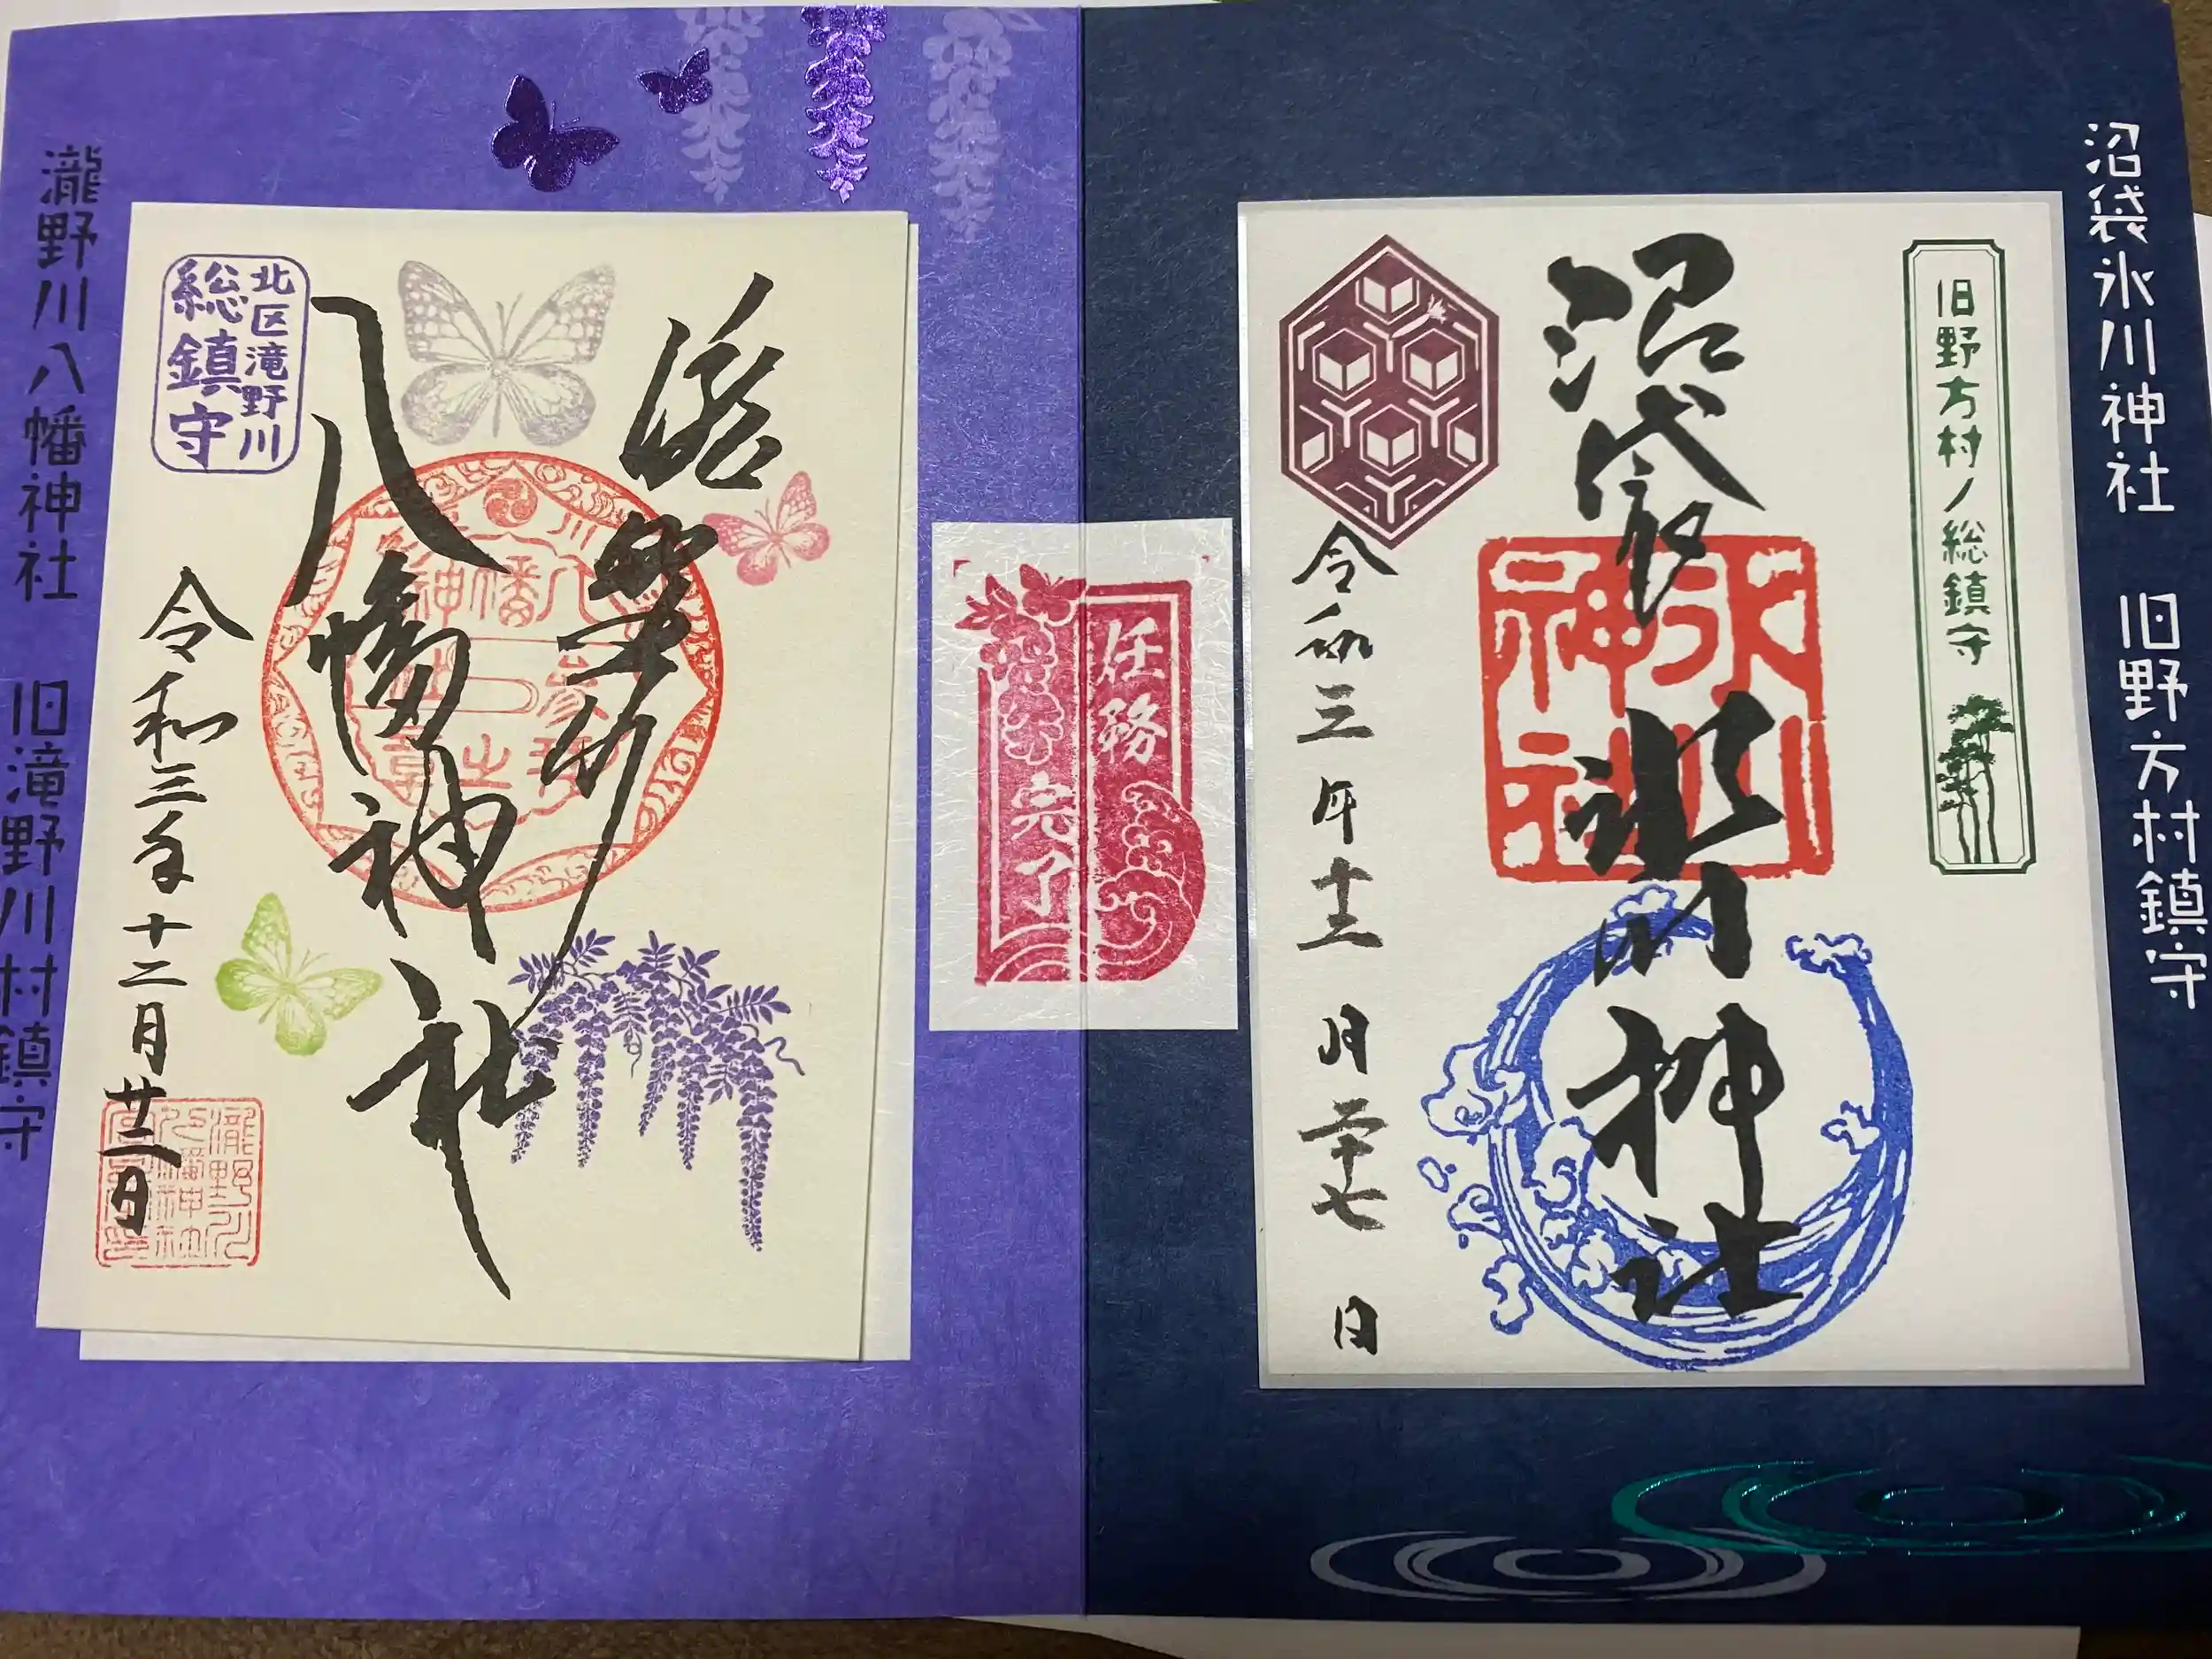 沼袋氷川神社 旧野方村鎮守
旧野方村ノ総鎮守
沼袋
氷川神社
氷川
神社
令和三年十二月二十七日
任務
完了
瀧野川
八幡神社
北区滝野川
総鎮守
令和三年十二月廿二日
瀧野川八幡神社 旧滝野川村鎮守